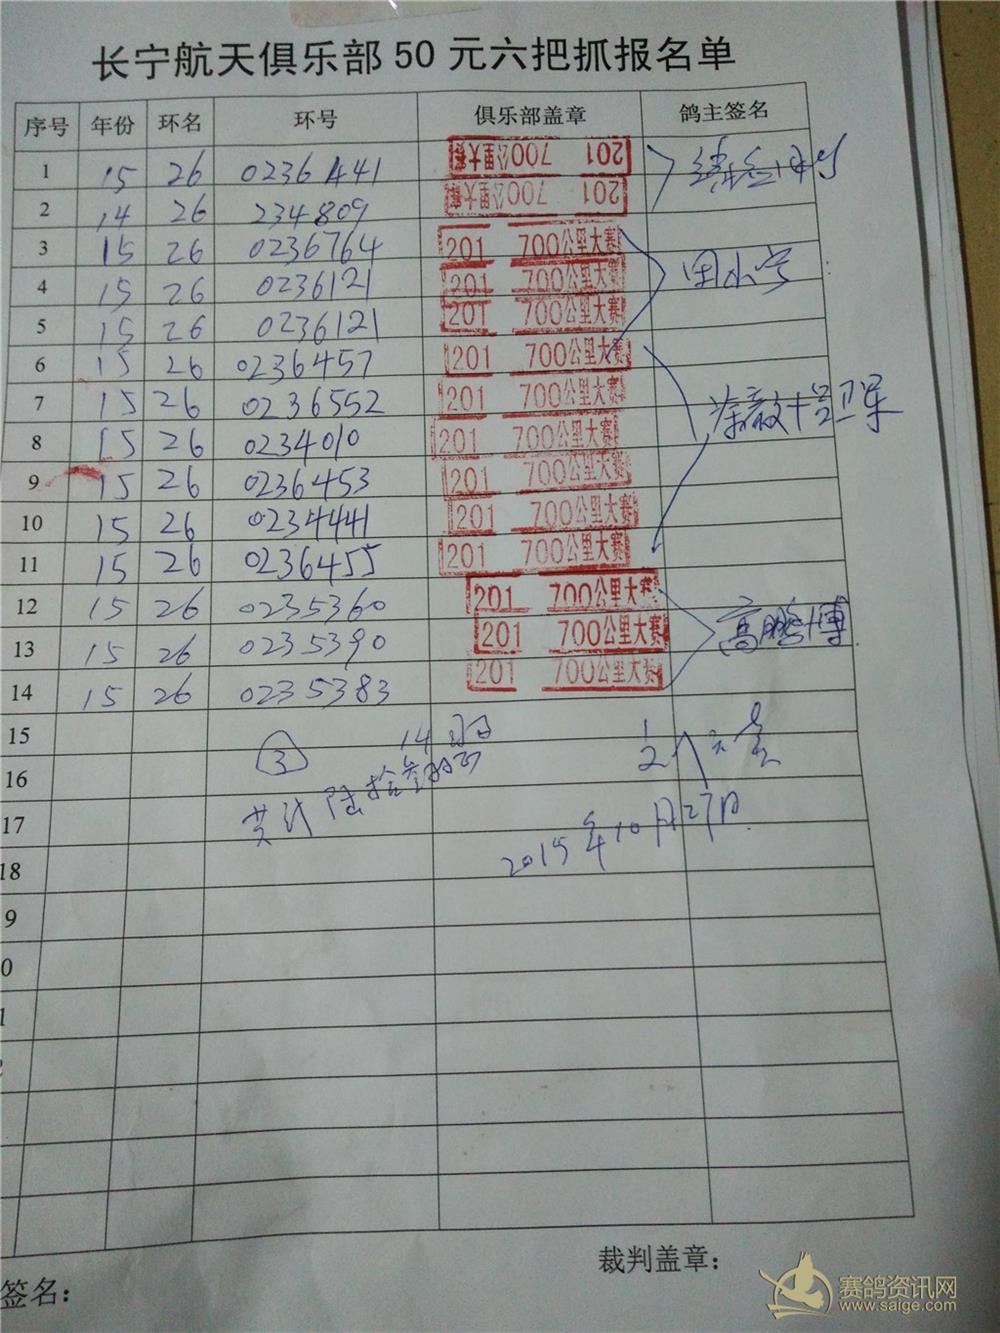 长宁航天俱乐部50元六把抓报名单
序号 年份 环名 环号 俱乐部盖章 鸽主签名
1 15 26 0236441 201 700公里大赛
2 14 26 234809 201 700公里大赛
3 15 26 0236764 201 700公里大赛
4 15 26 0236121 201 700公里大赛 田小宁
5 15 26 0236121 201 700公里大赛
6 15 26 0236457 201 700公里大赛
7 15 26 0236552 201 700公里大赛
8 15 26 0234010 201 700公里大赛
9 15 26 0236453 201 700公里大赛
10 15 26 0234441 201 700公里大赛
11 15 26 0236455 201 700公里大赛
12 15 26 0235360 201 700公里大赛
13 15 26 0235390 201 700公里大赛 高鹏博
14 15 26 0235383 201 700公里大赛
15
③ 14羽
16
共计陆拾叁羽
17
2015年10月27日
18
9
0
1
2
裁判盖章：
签名：
赛鸽资讯网
www.saige.com